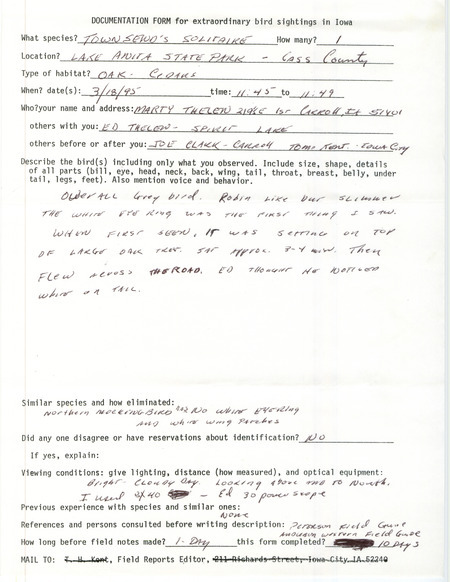 DOCUMENTATION FORM for extraordinary bird sightings in Iowa
What species? TOWNSEND'S SOLITAIRE How many? 1
Location? LAKE ANITA STATE PARK - CASS County
Type of habitat? OAK - CEDARS
When? date(s): 3/18/95 time: 11:45 to 11:49
Who?your name and address: MARTY THELEN 21466 1st CARROLL, IA 51401
others with you: ED THELEN - SPIRIT LAKE
others before or after you: JOE CLARK - CARROLL TOM KENT - IOWA City
Describe the bird(s) including only what you observed. Include size, shape, details
of all parts (bill, eye, head, neck, back, wing, tail, throat, breast, belly, under
tail, legs, feet). Also mention voice and behavior.
OVERALL Grey bird. Robin Like but slimmer
THE WHITE EYE RING WAS THE FIRST THING I SAW.
WHEN FIRST SEEN, IT WAS SETTING ON TOP
OF LARGE OAK TREE. SAT APPROX. 3-4 MIN. Then
FLEW ACROSS THE ROAD. ED THOUGHT HE NOTICED
WHITE ON TAIL.
Similar species and how eliminated:
Northern MOCKINGBIRD NO WHITE EYERING
AND WHITE WING PATCHES
Did any one disagree or have reservations about identification? NO
If yes, explain:
Viewing conditions: give lighting, distance (how measured), and optical equipment:
Bright - Cloudy Day. Looking above and to North.
I used 40 - Ed 30 power scope
Previous experience with species and similar ones:
None
References and persons consulted before writing description: PETERSON Field Guide
AUDUBON WESTERN Field Guide
How long before field notes made? 1-DAY this form completed? 10 DAYS
MAIL TO: T. H. Kent, Field Reports Editor, 211 Richards Street, Iowa City, IA 52240